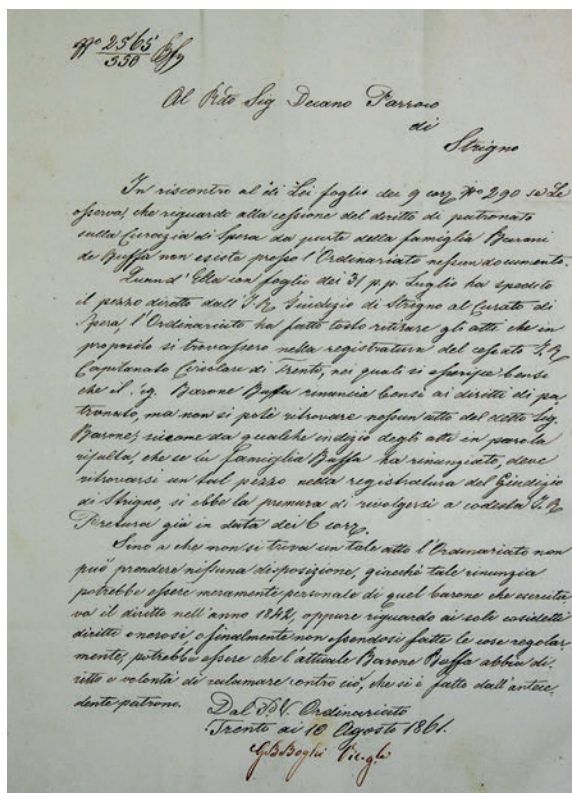 Nº 2565/550 Eccl
Al Rdo Sig Decano Parroco
di
Strigno
In riscontro al di Lei foglio dei 9 corr Nº 290 si Le
osserva, che riguardo alla cessione del diritto di patronato
sulla Curazia di Spera da parte della famiglia Baroni
de Buffa non esista presso l'Ordinariato nessun documento.
Quand'Ella con foglio dei 31 p.p. Luglio ha spedito
il pezzo diretto dall'I.R. Giudizio di Strigno al Curato di
Spera, l'Ordinariato ha fatto tosto retirare gli atti che in
proposito si trovassero nella registratura del cessato I.R.
Capitanato Circolare di Trento, nei quali si asserisce bensi
che il Sig. Barone Buffa rinuncia bensi ai diritti di pa
tronato, ma non si potè ritrovare nessun atto del detto Sig.
Barone; siccome da qualche indizio degli atti in parola
risulta, che se la famiglia Buffa ha rinunziato, deve
ritrovarsi un tal pezzo nella registratura del Giudizio
di Strigno, si ebbe la premura di rivolgersi a codesta I.R.
Pretura già in data dei 6 corr.
Sino a che non si trova un tale atto l'Ordinariato non
può prendere nissuna disposizione, giacchè tale rinunzia
potrebbe essere meramente personale di quel barone che esercita
va il diritto nell'anno 1842, oppure riguardo ai soli cosidetti
diritti onerosi, o finalmente non essendosi fatte le cose regolar
mente, potrebbe essere che l'attuale Barone Buffa abbia di
ritto e volontà di calamare contro ciò, che si è fatto dall'antece
dente patrono.
Dal P.V. Ordinariato
Trento ai 10 Agosto 1861.
GB Boghi